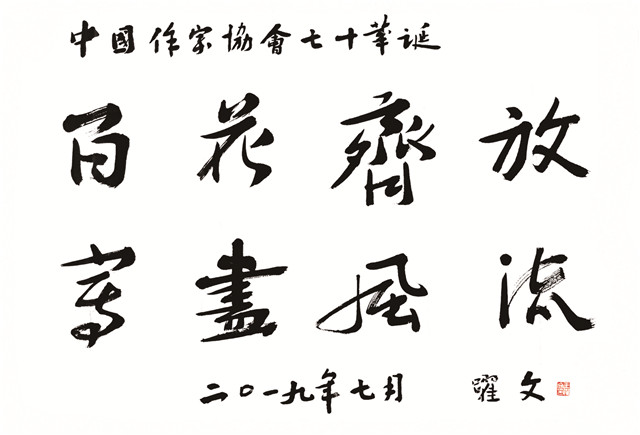 中國作家協會七十華誕
百花齊放
寫盡風流
二〇一九年七月 躍文